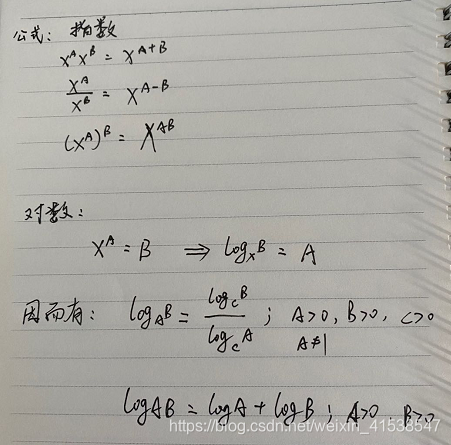 公式： 指数
X^A X^B = X^{A+B}
X^A / X^B = X^{A-B}
(X^A)^B = X^{AB}
对数：
X^A = B ⇒ log_X B = A
因而有： log_A B = log_C B / log_C A ； A>0, B>0, C>0
A≠1
log AB = log A + log B ; A>0, B>0
https://blog.csdn.net/weixin_41533547